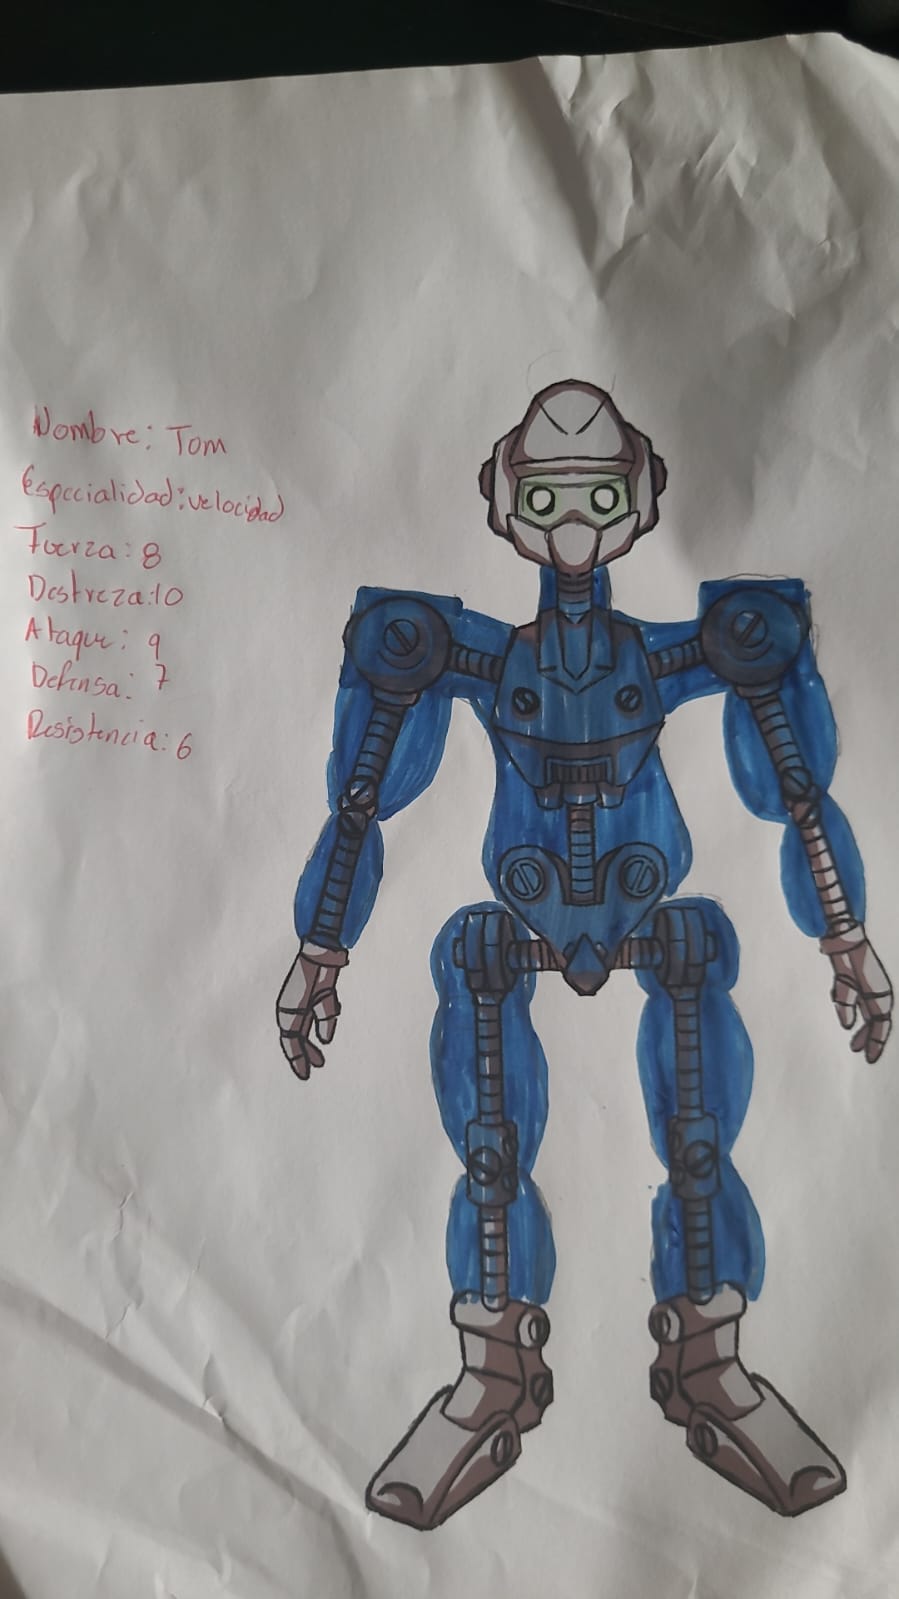 Nombre: Tom
Especialidad: velocidad
Fuerza: 8
Destreza: 10
Ataque: 9
Defensa: 7
Resistencia: 6